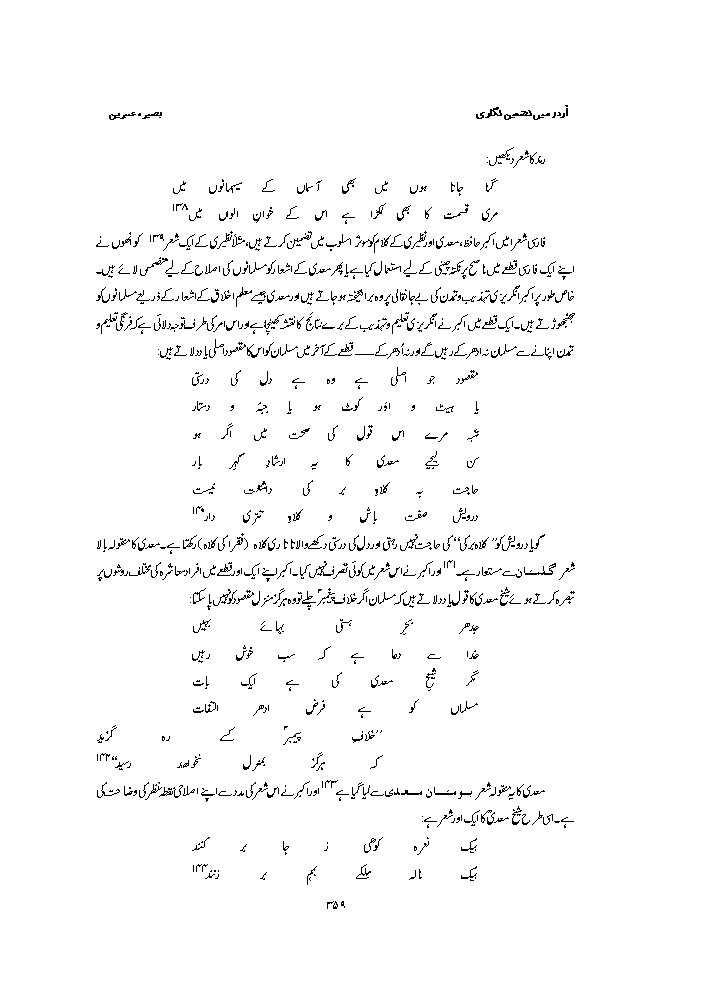 اُردو میں تضمین نگاری
بصیرہ عنبرین
رند کا شعر دیکھیں:
گنا جاتا ہوں میں بھی آسماں کے میہمانوں میں
مری قسمت کا بھی ٹکڑا ہے اس کے خوانِ الوں میں۱۳۸
فارسی شعرا میں اکبر حافظ، سعدی اور نظیری کے کلام کو موثر اسلوب میں تضمین کرتے ہیں، مثلاً نظیری کے ایک شعر۱۳۹ کو اُنھوں نے
اپنے ایک فارسی قطعے میں ناصح پر نکتہ چینی کے لیے استعمال کیا ہے یا پھر سعدی کے اشعار کو مسلمانوں کی اصلاح کے لیے متضمنی لائے ہیں۔
خاص طور پر اکبر انگریزی تہذیب و تمدن کی بے جا نقالی پر وہ برانگیختہ ہو جاتے ہیں اور سعدی جیسے معلم اخلاق کے اشعار کے ذریعے مسلمانوں کو
جھنجھوڑتے ہیں۔ ایک قطعے میں اکبر نے انگریزی تعلیم و تہذیب کے برے نتائج کا نقشہ کھینچا ہے اور اس امر کی طرف توجہ دلائی ہے کہ فرنگی تعلیم و
تمدن اپنانے سے مسلمان نہ ادھر کے رہیں گے اور نہ اُدھر کے ــــ قطعے کے آخر میں مسلمان کو اس کا مقصودِ اصلی یاد دلاتے ہیں:
مقصود جو اصلی ہے وہ ہے دل کی درستی
یا ہیٹ و اوَر کوٹ ہو یا جبّہ و دستار
شبہ مرے اس قول کی صحت میں اگر ہو
سن لیجیے سعدی کا یہ ارشادِ گہر بار
حاجت بہ کلاہِ بر کی داشتنت نیست
درویش صفت باش و کلاہِ تتری دار۱۴۰
گویا درویش کو ’’کلاہ بر کی‘‘ کی حاجت نہیں رہتی اور دل کی درستی دیکھے والا تاتاری کلاہ (فقرا کی کلاہ) رکھتا ہے۔ سعدی کا مقولہ بالا
شعر گلستان سے مستعار ہے۔۱۴۱ اور اکبر نے اس شعر میں کوئی تصرف نہیں کیا۔ اکبر اپنے ایک اور قطعے میں افرادِ معاشرہ کی مختلف روشوں پر
تبصرہ کرتے ہوئے شیخ سعدی کا قول یاد دلاتے ہیں کہ مسلمان اگر خلافِ پیغمبرؐ چلے تو وہ ہرگز منزلِ مقصود کو نہیں پا سکتا:
جدھر بحرِ ہستی بہائے بہیں
خدا سے دعا ہے کہ سب خوش رہیں
مگر شیخِ سعدی کی ہے ایک بات
مسلماں کو ہے فرض ادھر التفات
’’خلافِ پیمبرؐ کسے رہ گزید
کہ ہرگز بمنزل نخواہد رسید‘‘۱۴۲
سعدی کا یہ مقولہ شعر بوستانِ سعدی سے لیا گیا ہے۱۴۳ اور اکبر نے اس شعر کی مدد سے اپنے اصلاحی نقطۂ نظر کی وضاحت کی
ہے۔ اسی طرح شیخ سعدیؒ کا ایک اور شعر ہے:
بیک نعرہ کوہی ز جا بر کنند
بیک نالہ ملکے بہم بر زنند۱۴۴
۳۵۹